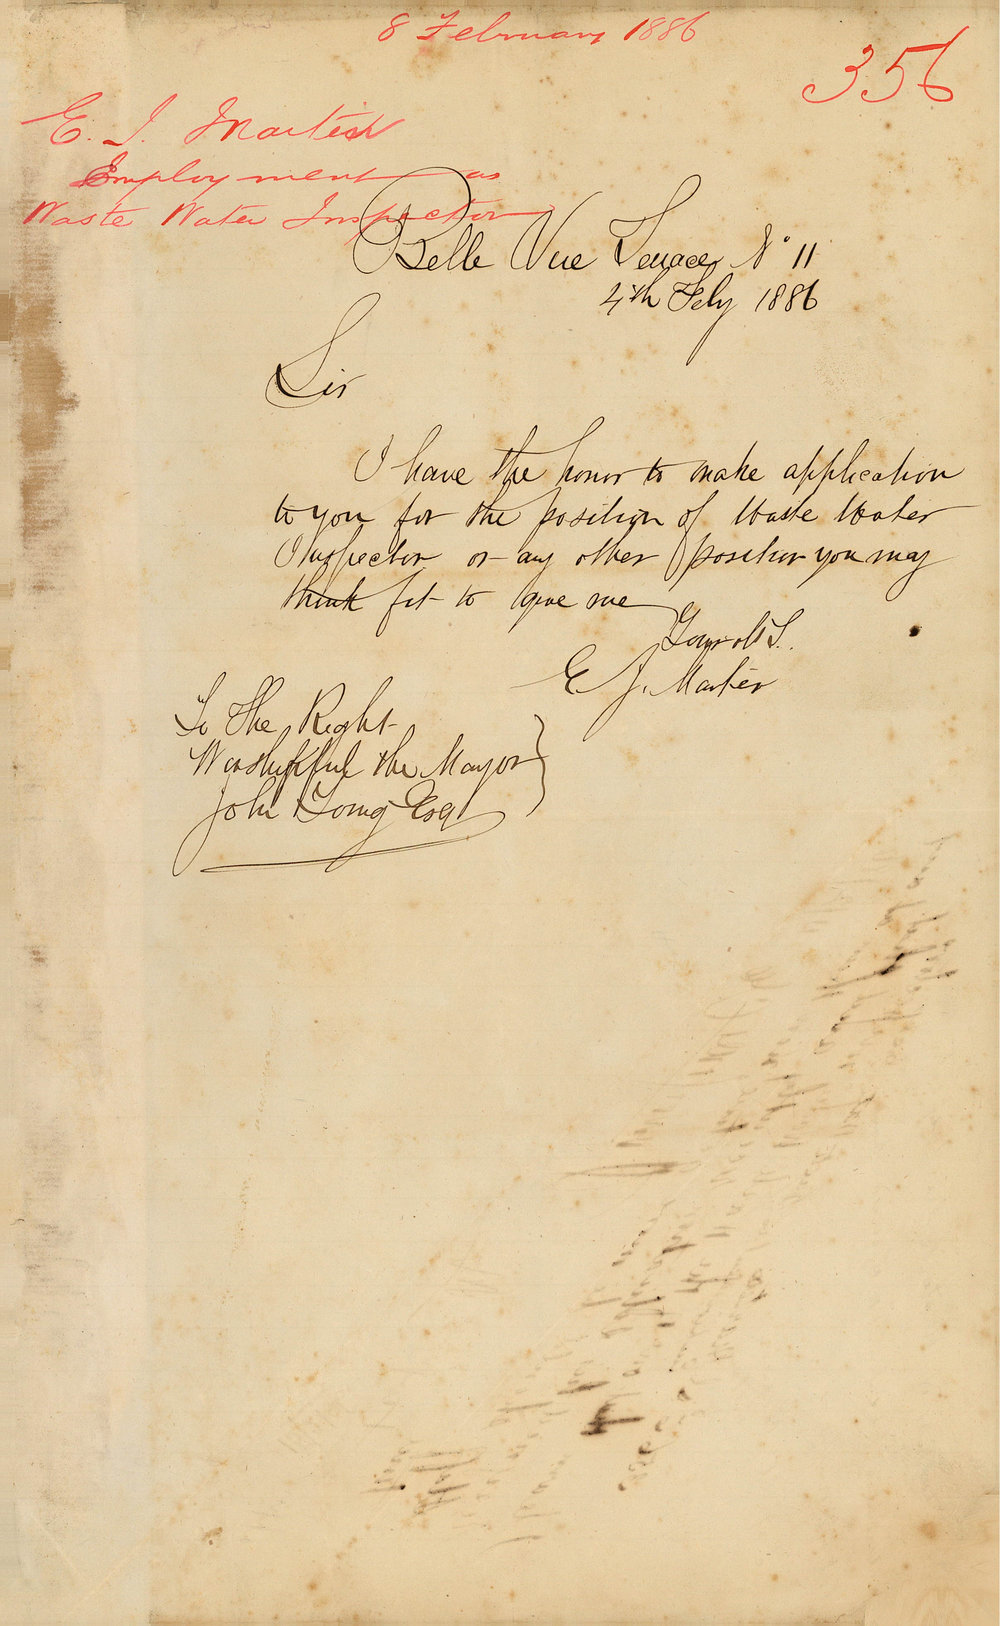 8 February 1886
356
E. J. Martin
Employment as
Waste Water Inspector
Belle Vue Terrace No 11
4th Feby 1886
Sir
I have the honor to make application
to you for the position of Waste Water
Inspector or any other position you may
think fit to give me
E. J. Martin
To The Right
Worshipfull the Mayor
John Young Esq